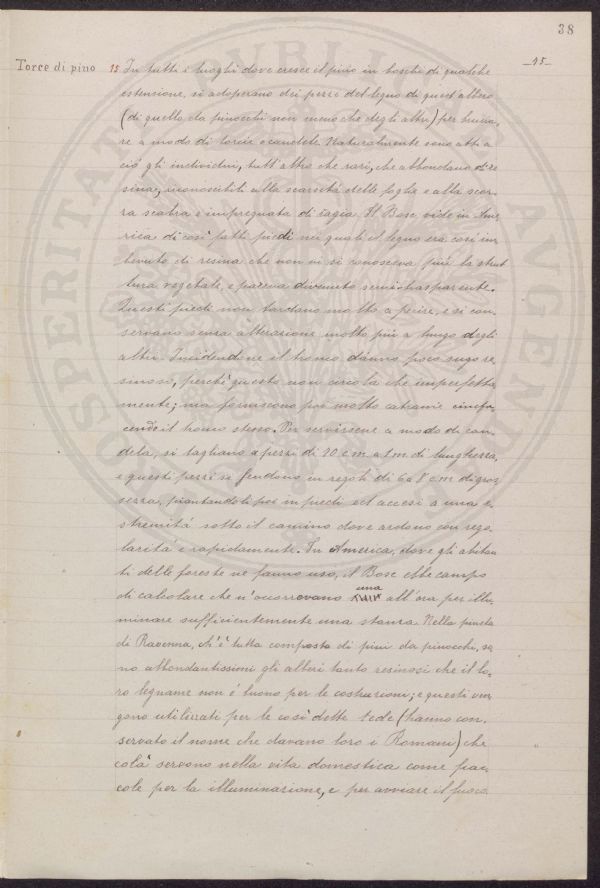 38
Torce di pino 15 In tutti i luoghi dove cresce il pino in boschi di qualche -15-
estensione, si adoperano dei pezzi del legno di quest'albero
(di quello da pinocchi non meno che degli altri) per brucia
re a modo di torcie e candele. Naturalmente sono atti a
ciò gli individui, tutt'altro che rari, che abbondano di re
sina, riconoscibili alla scarsità delle foglie e alla scor
ra scabra e impregnata di ragia. Il Bosc vide in Ame
rica di così fatti piedi nei quali il legno era così im
bevuto di resina che non vi si conosceva più la strut
tura vegetale, e pareva divenuto semi-trasparente.
Questi piedi non tardano molto a perire, e si con
servano senza alterazione molto più a lungo degli
altri. Incidendone il tronco danno poco sugo re
sinoso, perchè questo non circola che imperfetta
mente; ma forniscono poi molto catrame
cendo il tronco stesso. Per servirsene a modo di can
dela, si tagliano a pezzi di 20 c.m. a 1 m. di lunghezza,
e questi pezzi si fendono in regoli di 6 a 8 c.m. di gros
sezza, piantandoli poi in piedi ed accesi a una e
stremità sotto il camino dove ardono con rego
larità e rapidamente. In America, dove gli abitan
ti delle foreste ne fanno uso, il Bosc ebbe campo
di calcolare che n'occorrevano una all'ora per illu
minare sufficientemente una stanza. Nella pineta
di Ravenna, ch'è tutta composta di pini da pinocchi, so
no abbondantissimi gli alberi tanto resinosi che il lo
ro legname non è buono per le costruzioni; e questi ven
gono utilizzati per le così dette tede (hanno con
servato il nome che davano loro i Romani) che
colà servono nella vita domestica come fiac
cole per la illuminazione, e per avviare il fuoco